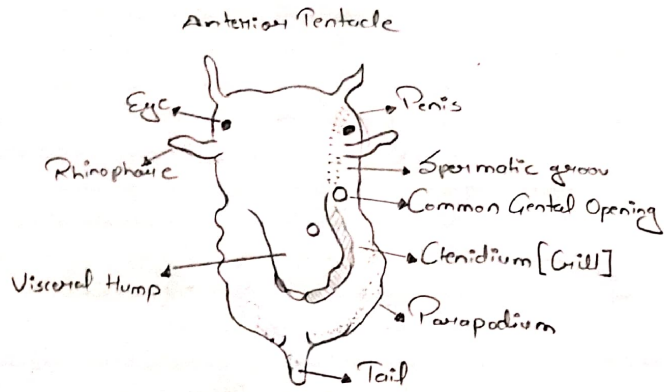 Anterior Tentacle
Eye
Penis
Rhinophore
Spermatic groov
Common Gental Opening
Ctenidium [Gill]
Visceral Hump
Parapodium
Tail